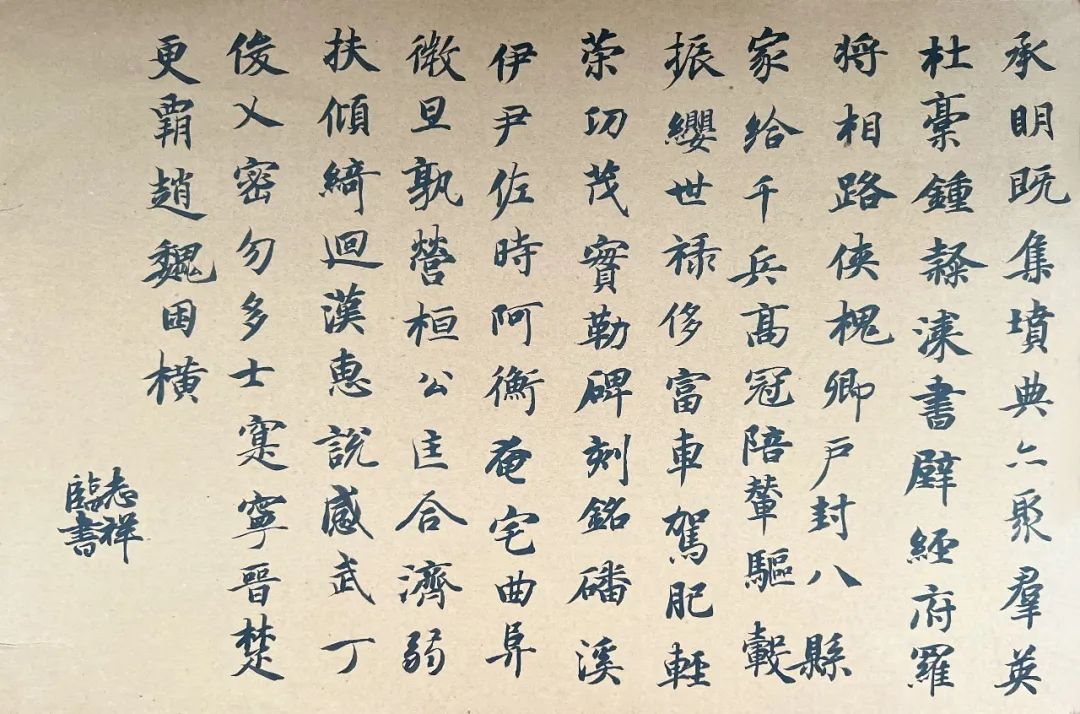 承明既集墳典亦聚羣英
杜稾鍾隸漆書壁經府羅
将相路俠槐卿戶封八縣
家給千兵高冠陪輦驅轂
振纓世禄侈富車駕肥輕
荣功茂實勒碑刻銘磻溪
伊尹佐時阿衡奄宅曲阜
微旦孰營桓公匡合濟弱
扶傾綺迴漢惠說感武丁
俊乂密勿多士寔寧晉楚
更霸趙魏困橫
志祥
臨書